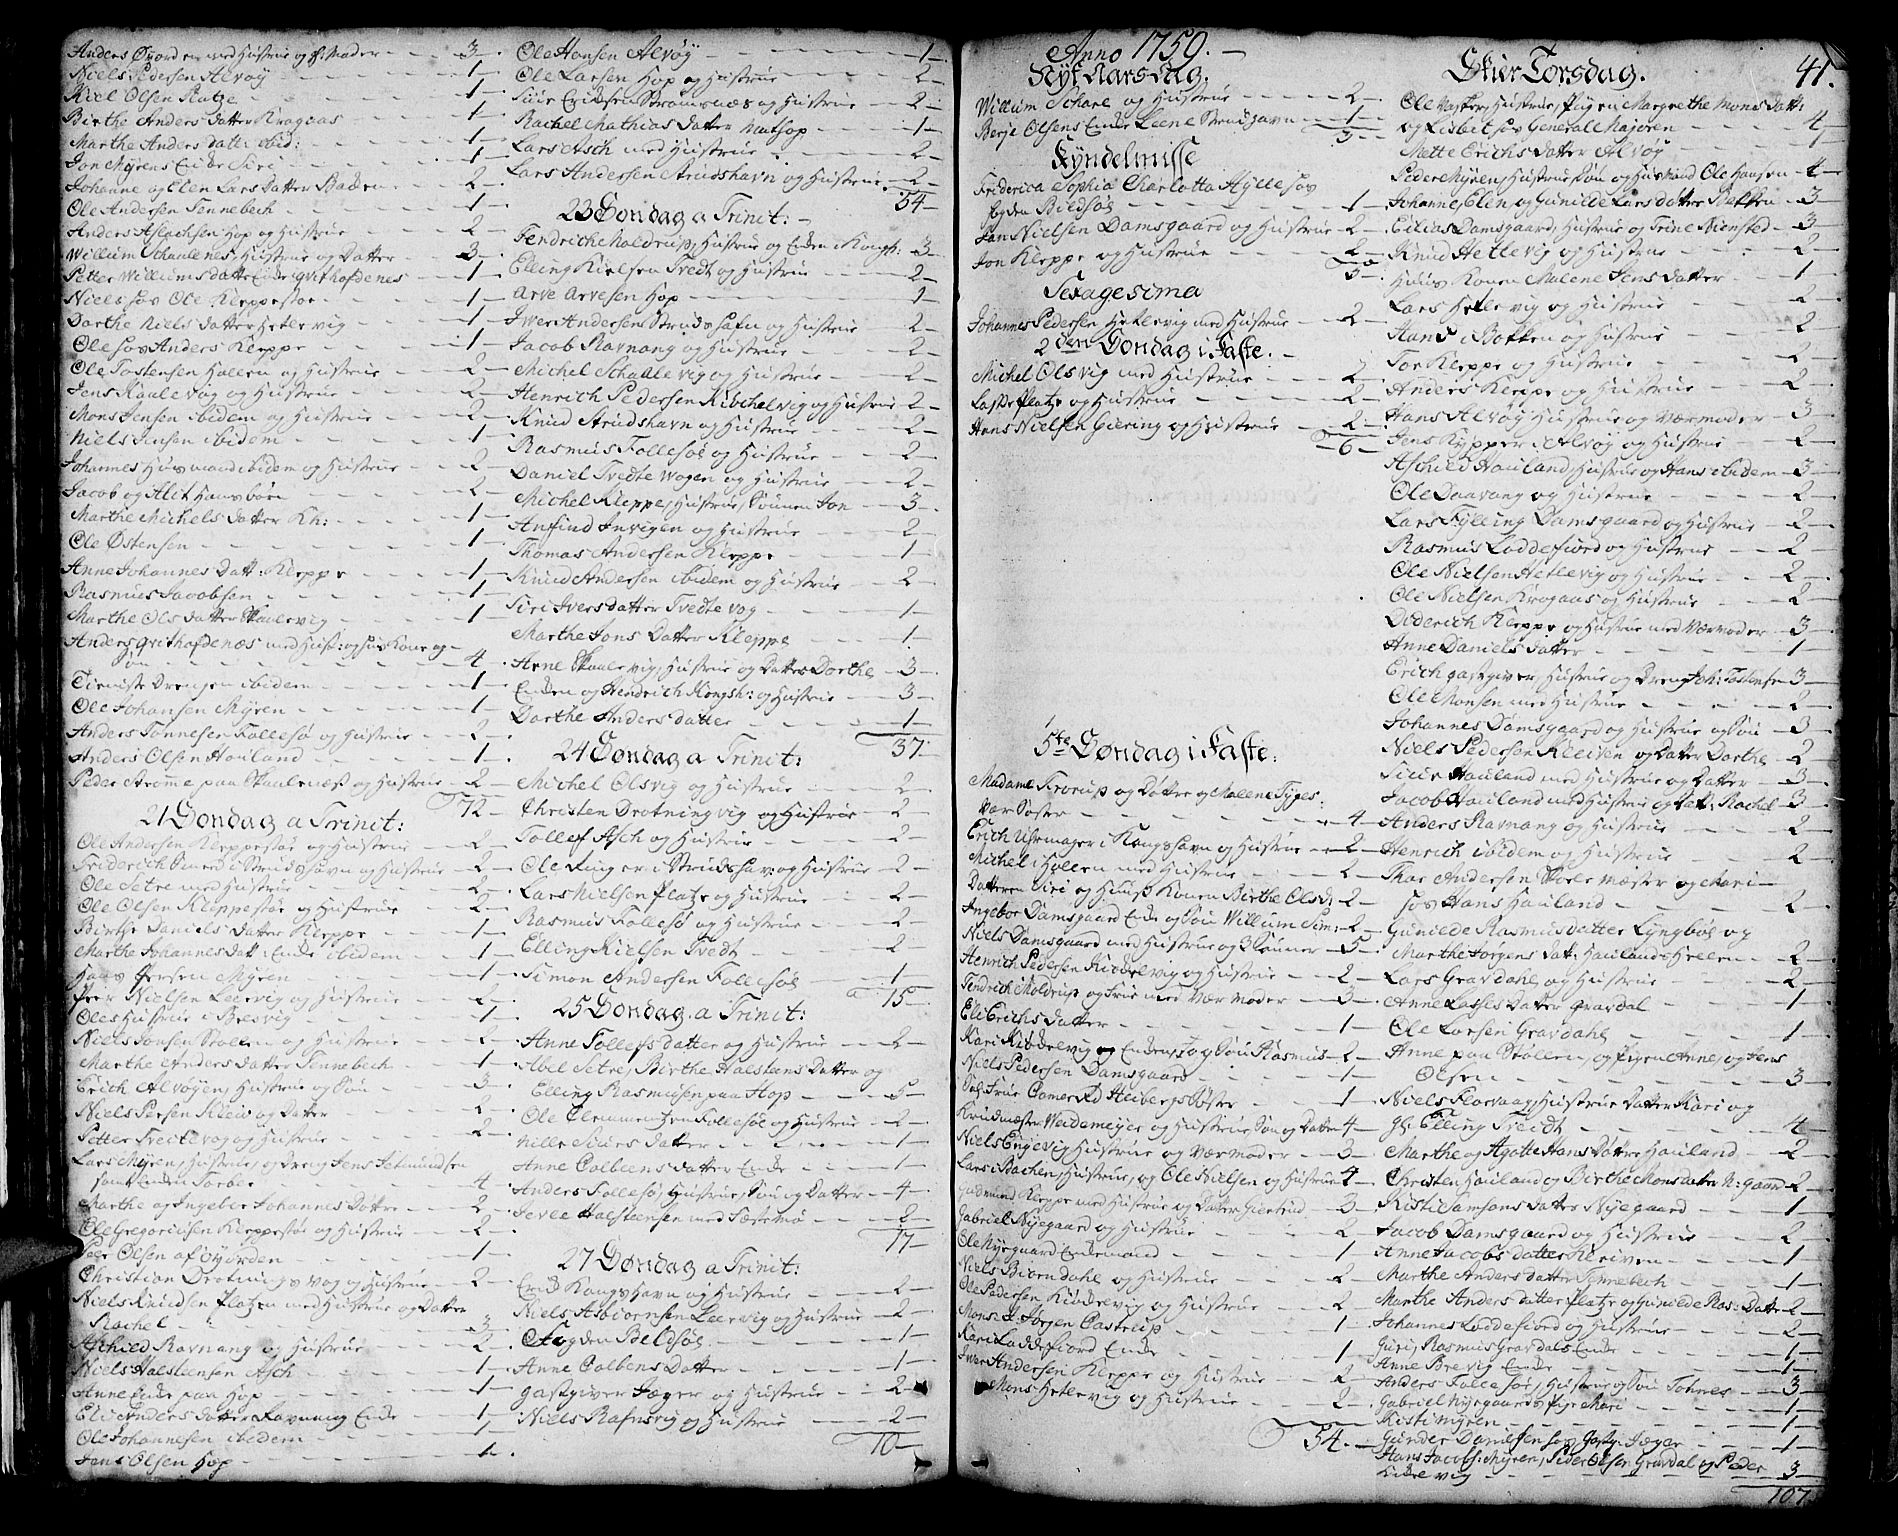 Anders Øvorden med Hustrue og St: Moder - 3 -
Niels Pedersen Alvøy - 1 -
Niel Olsen Platze - 1 -
Birthe Anders Datter Kragaas - 1 -
Marthe Anders datt: ibid: - 1 -
Jon Myrens Enke Siri - 1 -
Johanne og Elen Lars Datter Backen - 2 -
Ole Andersen Tennebech - 1 -
Anders Aslachsen Hop og Hustrue - 2 -
Willum Skaalenes, Hustrue og Datter - 3 -
Petter Willumsdatter Enke qvithofdenes - 1 -
Niels søv Ole Kleppestøe - 1 -
Dorthe Niels Datter Hetlevig - 1 -
Ole søv Anders Kleppe - 1 -
Ole Torstensen Hollen og Hustrue - 2 -
Jens Skaalevog og Hustrue - 2 -
Mons Jensen ibidem og Hustrue - 2 -
Niels Jensen ibidem - 1 -
Johannes Huusmand ibidem og Hustrue - 2 -
Jacob og Alit Hansbørn - 2 -
Marthe Michels Datter Kh: - 1 -
Ole Østensen - 1 -
Anne Johannes Datt: Kleppe - 1 -
Rasmus Jacobsen - 1 -
Marthe Ols Datter Skaalevig - 1 -
Anders qvithofdenæs med Hust: og huus Kone og
Søn - 4
Tieniste Drengen ibidem - 1 -
Ole Johansen Myren - 1 -
Anders Tønnesen Follesø og Hustrue - 2 -
Anders Olsen Houland - 1 -
Peder Strømme paa Skaalenæs og Hustrue - 2 -
72 -
21 Søndag a Trinit:
Ole Andersen Kleppestøe og Hustrue - 2 -
Friderich Smed i Strudshavn og Hustrue - 2 -
Ole Setre med Hustrue - 2 -
Ole Olsen Kleppestøe og Hustrue - 2 -
Birthe Daniels Datter Kleppe - 1 -
Marthe Johannes Datt: Enke ibidem - 1 -
Hans Persen Myren - 1 -
Peer Nielsen Leervig og Hustrue - 2 -
Oles Hustrue i Brevig - 1 -
Niels Jonsen Støllen og Hustrue - 2 -
Marthe Anders datter Tennebech - 1 -
Erich Alvøyen, Hustrue og Søn - 3 -
Niels Persen Kleiv og Datter - 2 -
Petter Tveitevog og Hustrue - 2 -
Lars Myren, Hustrue, og Dreng Jens Setmundsen
samt Enken Torber - 4 -
Marthe og Ingeber Johannes Døttre - 2 -
Ole Gregoriusen Kleppestøe og Hustrue - 2 -
Peer Olsen af Øvorden - 1 -
Christian Drotningsvog og Hustrue - 2 -
Niels Knudsen Platzen med Hustrue og Datter
Rachel - 3
Aschild Ravnang og Hustrue - 2 -
Niels Halstensen Asch - 1 -
Anne Enke paa Hop - 1 -
Eli Anders datter Ravnang Enke - 1 -
Ole Johannesen ibidem - 1 -
Jens Olsen Hop - 1 -
Ole Hansen Alvøy - 1 -
Ole Larsen Hop og Hustrue - 2 -
Siur Erichsen Strømsnæs og Hustrue - 2 -
Rachel Mathias Datter Mathop - 1 -
Lars Asch med Hustrue - 2 -
Lars Andersen Strudshavn og Hustrue - 2 -
54 -
23 Søndag a Trinit: -
Fendrich Moldrup, Hustrue og Enken i Kongh: - 3 -
Elling Nielsen Tvedt og Hustrue - 2 -
Arve Arvesen Hop - 1 -
Iver Andersen Strudshafn og Hustrue - 2 -
Jacob Ravnang og Hustrue - 2 -
Michel Schaalevig og Hustrue - 2 -
Henrich Pedersen Kiøchelvig og Hustrue 2 -
Knud Strudshavn og Hustrue - 2 -
Rasmus Follesøe og Hustrue - 2 -
Daniel Tvedte Wogen og Hustrue - 2 -
Michel Kleppe, Hustrue, Sønnen Jon - 3 -
Anfind Invigen og Hustrue - 2 -
Thomas Andersen Kleppe - 1 -
Knud Andersen ibidem og Hustrue - 2 -
Siri Ivers datter Tvedtevog - 1 -
Marthe Jons Datter Kleppe - 1 -
Arne Skaalevig, Hustrue og Datter Dorthe - 3 -
Enken og Hendrich Kongsh: og Hustrue - 3 -
Dorthe Anders datter - 1 -
37 -
24 Søndag a Trinit:
Michel Olsvig og Hustrue - 2 -
Christen Drotningvig og Hustrue - 2 -
Tollef Asch og Hustrue - 2 -
Ole Ringer i Strudshav: og Hustrue - 2 -
Lars Nielsen Platze og Hustrue - 2 -
Rasmus Follesø og Hustrue - 2 -
Elling Nielsen Tvedt - 2 -
Simon Andersen Follesøe - 1 -
15 -
25 Søndag a Trinit:
Anne Tollefs datter og Hustrue - 2 -
Abel Setre, Birthe Halstens Datter og
Elling Rasmusen paa Hop - 5 -
Ole Clemmentzen Follesøe og Hustrue - 2 -
Nille Siurs datter - 1 -
Anne Colbeens datter Enke - 1 -
Anders Follesø, Hustrue, Søn og Datter - 4 -
Sevle Halsteensen med Festemø - 2 -
17 -
27 Søndag a Trinit:
Erich Kongshavn og Hustrue - 2 -
Niels Asbiørnsen Leervig og Hustrue - 2 -
Fogden Bildsøe - 1 -
Anne Colbens Datter - 1 -
Gastgiver Jæger og Hustrue - 2 -
Niels Rafnsvig og Hustrue - 2 -
10 -
Anno 1750. -
Nyt Aarsdag.
Willum Schare og Hustrue - 2 -
Børje Olsens Enke Leene Strudshavn - 1 -
3 -
Kyndelmisse
Friderica Sophia Charlotta Hylle sov
Fogden Bildsøe - 1 -
Jan Nielsen Damsgaard og Hustrue - 2 -
Jon Kleppe og Hustrue - 2 -
5 -
Sexagesima
Johannes Pedersen Hetlevig med Hustrue - 2 -
2den Søndag i Faste. -
Michel Olsvig med Hustrue - 2 -
Lasse Platze og Hustrue - 2 -
Hans Nielsen Giering og Hustrue - 2 -
6 -
5te Søndag i Faste.
Madame Frorup og Døtter og Malene Tyges:
Vær Søster - 4 -
Erich Uhrmager i Kongshavn og Hustrue - 2 -
Michel i Hollen med Hustrue - 2 -
Datteren Siri og Huus Konen Birthe Olsd: 2 -
Ingebor Damsgaard Enke og Søn Willum Sim: 2 -
Niels Damsgaard med Hustrue og 3 Sønner - 5 -
Henrich Pedersen Kiøkelvig og Hustrue - 2 -
Fendrich Moldrup og Frue med Vær Moder - 3 -
Eli Erichs datter - 1 -
Kari Kiøkelvig og Enken, og Søn Rasmus - 2 -
Niels Pedersen Damsgaard - 1 -
Sal: Frue Camer R: Heibergs Søster - 1
Krudmæster Weidemeyer og Hustrue, Søn og Datter 4 -
Niels Engevig Hustrue og Værmoder - 3 -
Lars i Bachen, Hustrue, og Ole Nielsen og Hustrue 4 -
Gudmund Kleppe med Hustrue og Datter Giertrud - 3 -
Gabriel Nyegaard og Hustrue - 2
Ole Nyegaard Enkemand - 1
Niels Biørndahl og Hustrue - 2
Ole Pedersen Kiøkelvig og Hustrue - 2
Mons: J. Jørgen Castrup - 1 -
Kari Laddefiord Enke - 1
Iver Andersen Kleppe og Hustrue - 2
Mons Hetlevig og Hustrue - 2 -
54. -
Skier Torsdag.
41.
Ole Vasker, Hustrue, Pigen Margrethe Mons Datt:
og Lisbet sov General Majoren - 4
Mette Erichs Datter Alvøy - 1
Peder Myren, Hustrue, Søn og Huusmand Ole Hansen - 4 -
Johanne, Elen og Gunilde Lars datter Bekken - 3 -
Eilias Damsgaard, Hustrue og Trine Niensted - 3 -
Knud Hetlevig og Hustrue - 2
Huus Konen Malene Jens Datter - 1 -
Lars Hetlevig og Hustrue - 2 -
Hans i Bakken og Hustrue - 2
Tor Kleppe og Hustrue - 2
Anders Kleppe og Hustrue - 2 -
Hans Alvøy Hustrue og Værmoder - 3 -
Jens Kypper i Alvøy og Hustrue - 2 -
Aschild Houland, Hustrue og Hans ibidem - 3 -
Ole Daavang og Hustrue - 2 -
Lars Fylling Damsgaard og Hustrue - 2 -
Rasmus Loddefiord og Hustrue - 2 -
Ole Nielsen Hetlevig og Hustrue - 2
Ole Nielsen Kragaas og Hustrue - 2 -
Diderich Kleppe og Hustrue med Værmoder - 3 -
Anne Daniels datter - 1 -
Erich Gastgiver, Hustrue og Dreng Joh: Tostense - 3 -
Ole Monsen med Hustrue - 2 -
Johannes Damsgaard og Hustrue og Søn - 3 -
Niels Pedersen Kleiven og Datter Dorthe - 2
Siur Houland med Hustrue og Datter - 3 -
Jacob Houland med Hustrue og Dat: Rachel - 3 -
Anders Ravnang og Hustrue - 2 -
Henrich ibidem og Hustrue - 2 -
Thor Andersen Skole Mæster og Mari -
sov Hans Houland - 2 -
Gunilde Rasmusdatter Lyngbøe og
Marthe Jørgens Datt: Houlands Hellen - 2 -
Lars Gravdahl og Hustrue - 2 -
Anne Lasses Datter Gravdal - 1 -
Ole Larsen Gravdahl - 1 -
Anne paa Støllen, og Pigen Anne, og Jens
Olsen - 3 -
Niels Florvaag, Hustrue Datter Kari og
Gl: Elling Tvedt - 4 -
Marthe og Agatte Hans Døttre Houland - 2 -
Christen Houland og Birthe Mons dater N: Gaar - 2 -
Kisti Samsons Datter Nyegaard - 1
Jacob Damsgaard og Hustrue - 2 -
Anne Jacobs datter Kleiven - 1
Marthe Anders datter Tennebech - 1 -
Marthe Anders datter Platze og Gunilde Ras: Datte - 2 -
Johannes Loddefiord og Hustrue - 2 -
Guri, Rasmus Gravdals Enke - 1 -
Anne Brevig Enke - 1 -
Anders Follesøe, Hustrue og Søn Johnes - 3 -
Gabriel Nyegaards Pige Mari - 1 -
Kisti Myren - 1 -
Gunder Danielsen sov Gastg: Jæger - 1 -
Hans Jacobs: Myren, Peder Olsen Gravdal og Peder
Leirevig - 3 -
107.